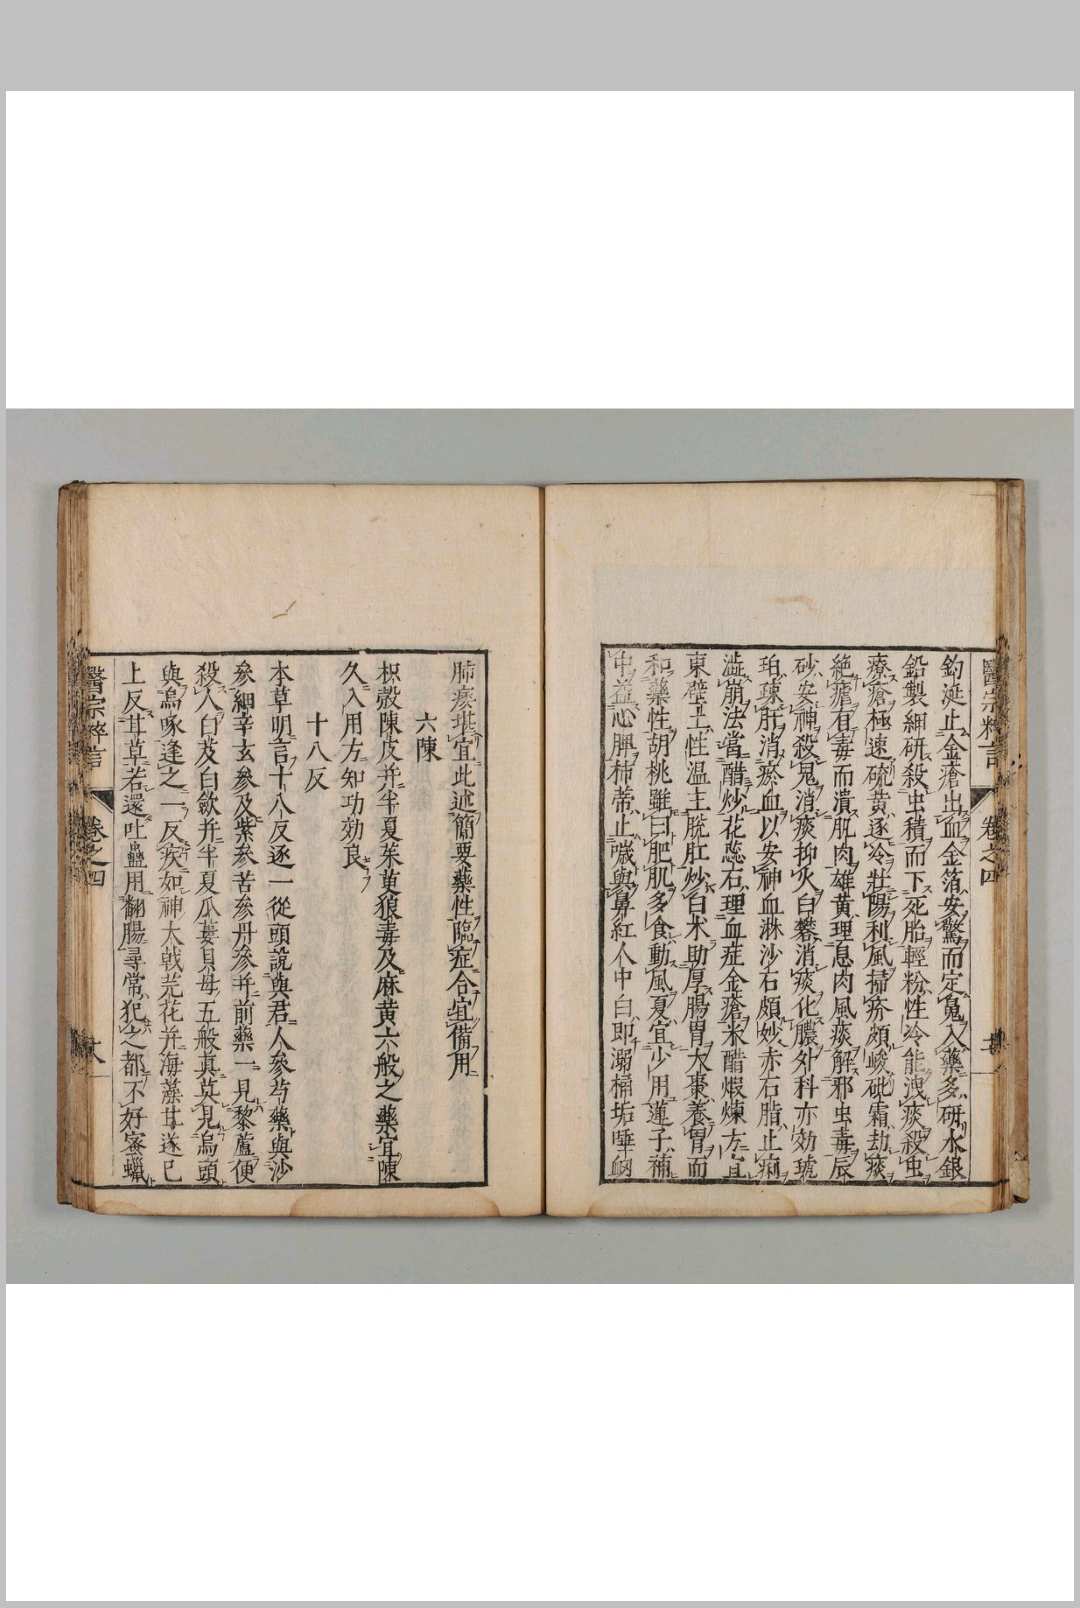 醫宗粹言 卷之四
釣涎止金瘡出血金箔安驚而定䰟入藥多研水銀
鉛製細研殺虫積而下死胎輕粉性冷能洩痰殺虫
療瘡極速硫黄逐冷壮陽利風掃疥頗峻砒霜劫痰
絶瘧有毒而潰肌肉雄黄理息肉風痰解邪虫毒辰
砂安神殺鬼消痰抑火白礬消痰化膿外科亦効琥
珀踈肝消瘀血以安神血淋沙石頗妙赤石脂止痢
澁崩法當醋炒花蕊石理血症金瘡米醋煆煉方宜
東壁土性温主脱肛炒白术助厚腸胃大棗養胃而
和藥性胡桃雖曰肥肌多食動風夏宜少用蓮子補
中益心脾柿蒂止噦與鼻紅人中白即溺桶垢唾衂
肺痿堪宜此述簡要藥性臨症合宜備用
六陳
枳殻陳皮并半夏茱萸狼毒及麻黄六般之藥宜陳
久入用方知功効良
十八反
本草明言十八反逐一從頭說與君人參芍藥與沙
參細辛玄參及紫參苦參丹參并前藥一見黎蘆便
殺人白芨白歛并半夏瓜蔞貝母五般真莫見烏頭
與烏啄逢之一反疾如神大戟芫花并海藻甘遂已
上反甘草若還吐蠱用翻腸尋常犯之都不好蜜蠟
醫宗粹言 卷之四